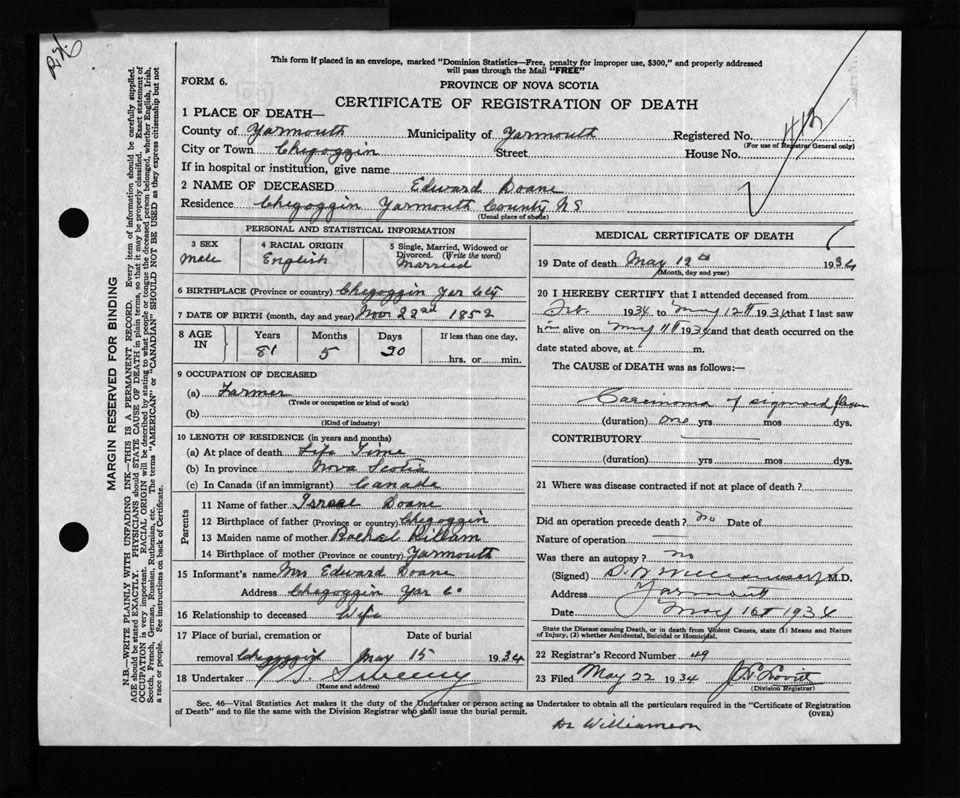 This form if placed in an envelope, marked "Dominion Statistics—Free, penalty for improper use, $300," and properly addressed
will pass through the Mail "FREE"
FORM 6.
PROVINCE OF NOVA SCOTIA
CERTIFICATE OF REGISTRATION OF DEATH
1 PLACE OF DEATH—
County of Yarmouth Municipality of Yarmouth Registered No. 412
(For use of Registrar General only)
City or Town Chegoggin Street House No.
If in hospital or institution, give name
2 NAME OF DECEASED Edward Doane
Residence Chegoggin Yarmouth County NS
(Usual place of abode)
PERSONAL AND STATISTICAL INFORMATION
3 SEX 4 RACIAL ORIGIN 5 Single, Married, Widowed or
Divorced. (Write the word)
Male English Married
6 BIRTHPLACE (Province or country) Chegoggin Yar Cty
7 DATE OF BIRTH (month, day and year) Nov 22nd 1852
8 AGE IN Years Months Days If less than one day,
81 5 20 hrs. or min.
9 OCCUPATION OF DECEASED
(a) Farmer
(Trade or occupation or kind of work)
(b)
(Kind of industry)
10 LENGTH OF RESIDENCE (in years and months)
(a) At place of death Life Time
(b) In province Nova Scotia
(c) In Canada (if an immigrant) Canada
Parents
11 Name of father Israel Doane
12 Birthplace of father (Province or country) Chegoggin
13 Maiden name of mother Rachel Killam
14 Birthplace of mother (Province or country) Yarmouth
15 Informant's name Mrs Edward Doane
Address Chegoggin Yar Co
16 Relationship to deceased Wife
17 Place of burial, cremation or Date of burial
removal Chegoggin May 15 1934
18 Undertaker
(Name and address)
MEDICAL CERTIFICATE OF DEATH
19 Date of death May 12th 1934
(Month, day and year)
20 I HEREBY CERTIFY that I attended deceased from
Feb. 1934 to May 12th 1934 that I last saw
him alive on May 11th 1934 and that death occurred on the
date stated above, at m.
The CAUSE of DEATH was as follows:—
Carcinoma of sigmoid
(duration) one yrs mos dys.
CONTRIBUTORY
(duration) yrs mos dys.
21 Where was disease contracted if not at place of death?
Did an operation precede death? no Date of
Nature of operation
Was there an autopsy? no
(Signed) M.D.
Address Yarmouth
Date May 16th 1934
State the Disease causing Death, or in death from Violent Causes, state (1) Means and Nature
of Injury, (2) whether Accidental, Suicidal or Homicidal.
22 Registrar's Record Number 49
23 Filed May 22 1934
(Division Registrar)
Sec. 46—Vital Statistics Act makes it the duty of the Undertaker or person acting as Undertaker to obtain all the particulars required in the "Certificate of Registration
of Death" and to file the same with the Division Registrar who shall issue the burial permit.
(OVER)
Dr Williamson
MARGIN RESERVED FOR BINDING
N.B.—WRITE PLAINLY WITH UNFADING INK—THIS IS A PERMANENT RECORD. Every item of information should be carefully supplied.
AGE should be stated EXACTLY. PHYSICIANS should STATE CAUSE OF DEATH in plain terms, so that it may be properly classified. Exact statement of
OCCUPATION is very important. RACIAL ORIGIN will be described by stating to what people or tongue the deceased person belonged, whether English, Irish,
Scotch, French, German, Russian, Ruthenian, etc. The terms "AMERICAN" or "CANADIAN" SHOULD NOT BE USED as they express citizenship but not
a race or people. See instructions on back of Certificate.